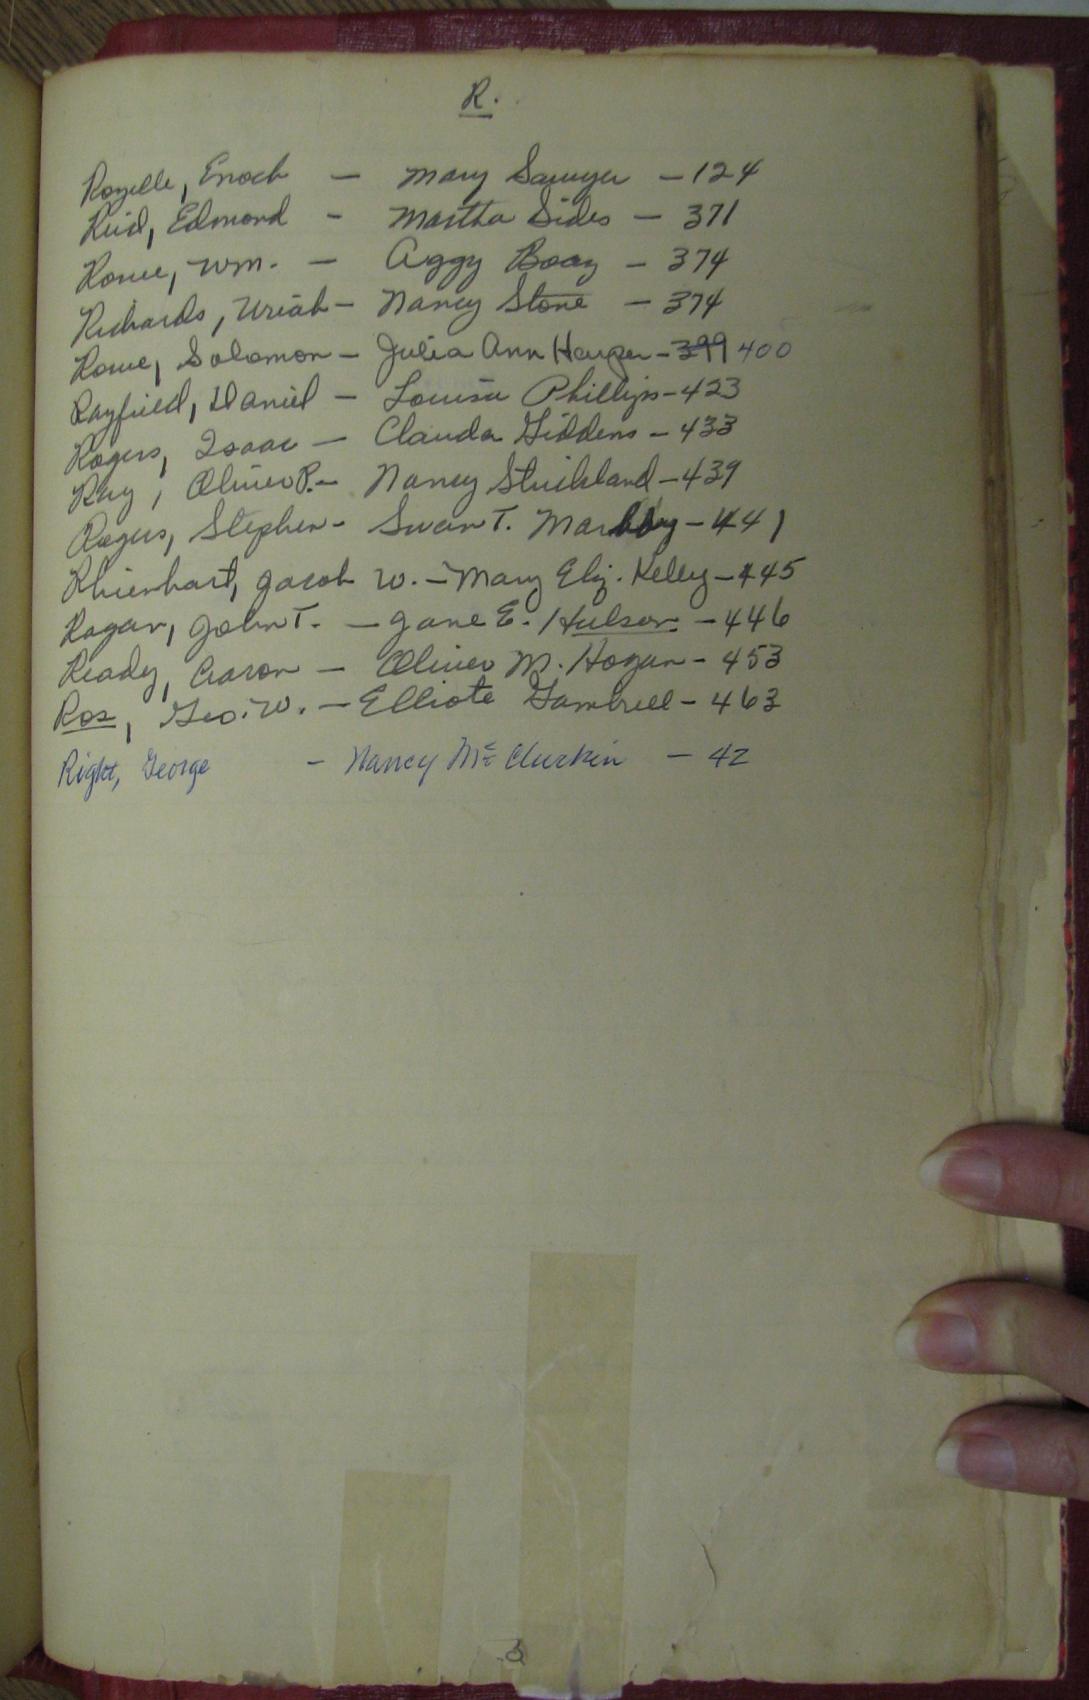 R.
Rozelle, Enoch — Mary Sawyer — 124
Reid, Edmond - Martha Sides — 371
Rowe, Wm. — Aggy Boaz — 374
Richards, Uriah — Nancy Stone — 374
Rowe, Solomon — Julia Ann Harper — 399 400
Rayfield, Daniel — Louisa Phillips — 423
Rogers, Isaac — Clauda Giddens — 433
Ray, Oliver P. — Nancy Strickland — 439
Rogers, Stephen - Susan T. — 441
Rhienhart, Jacob W. — Mary Eliz. Kelley — 445
Ragan, John T. — Jane E. Hulsen — 446
Ready, Aaron — Oliver M. Hogan - 453
Ros, Geo. W. — Elliote Gambrell - 463
Right, George - Nancy McClurkin — 42
3